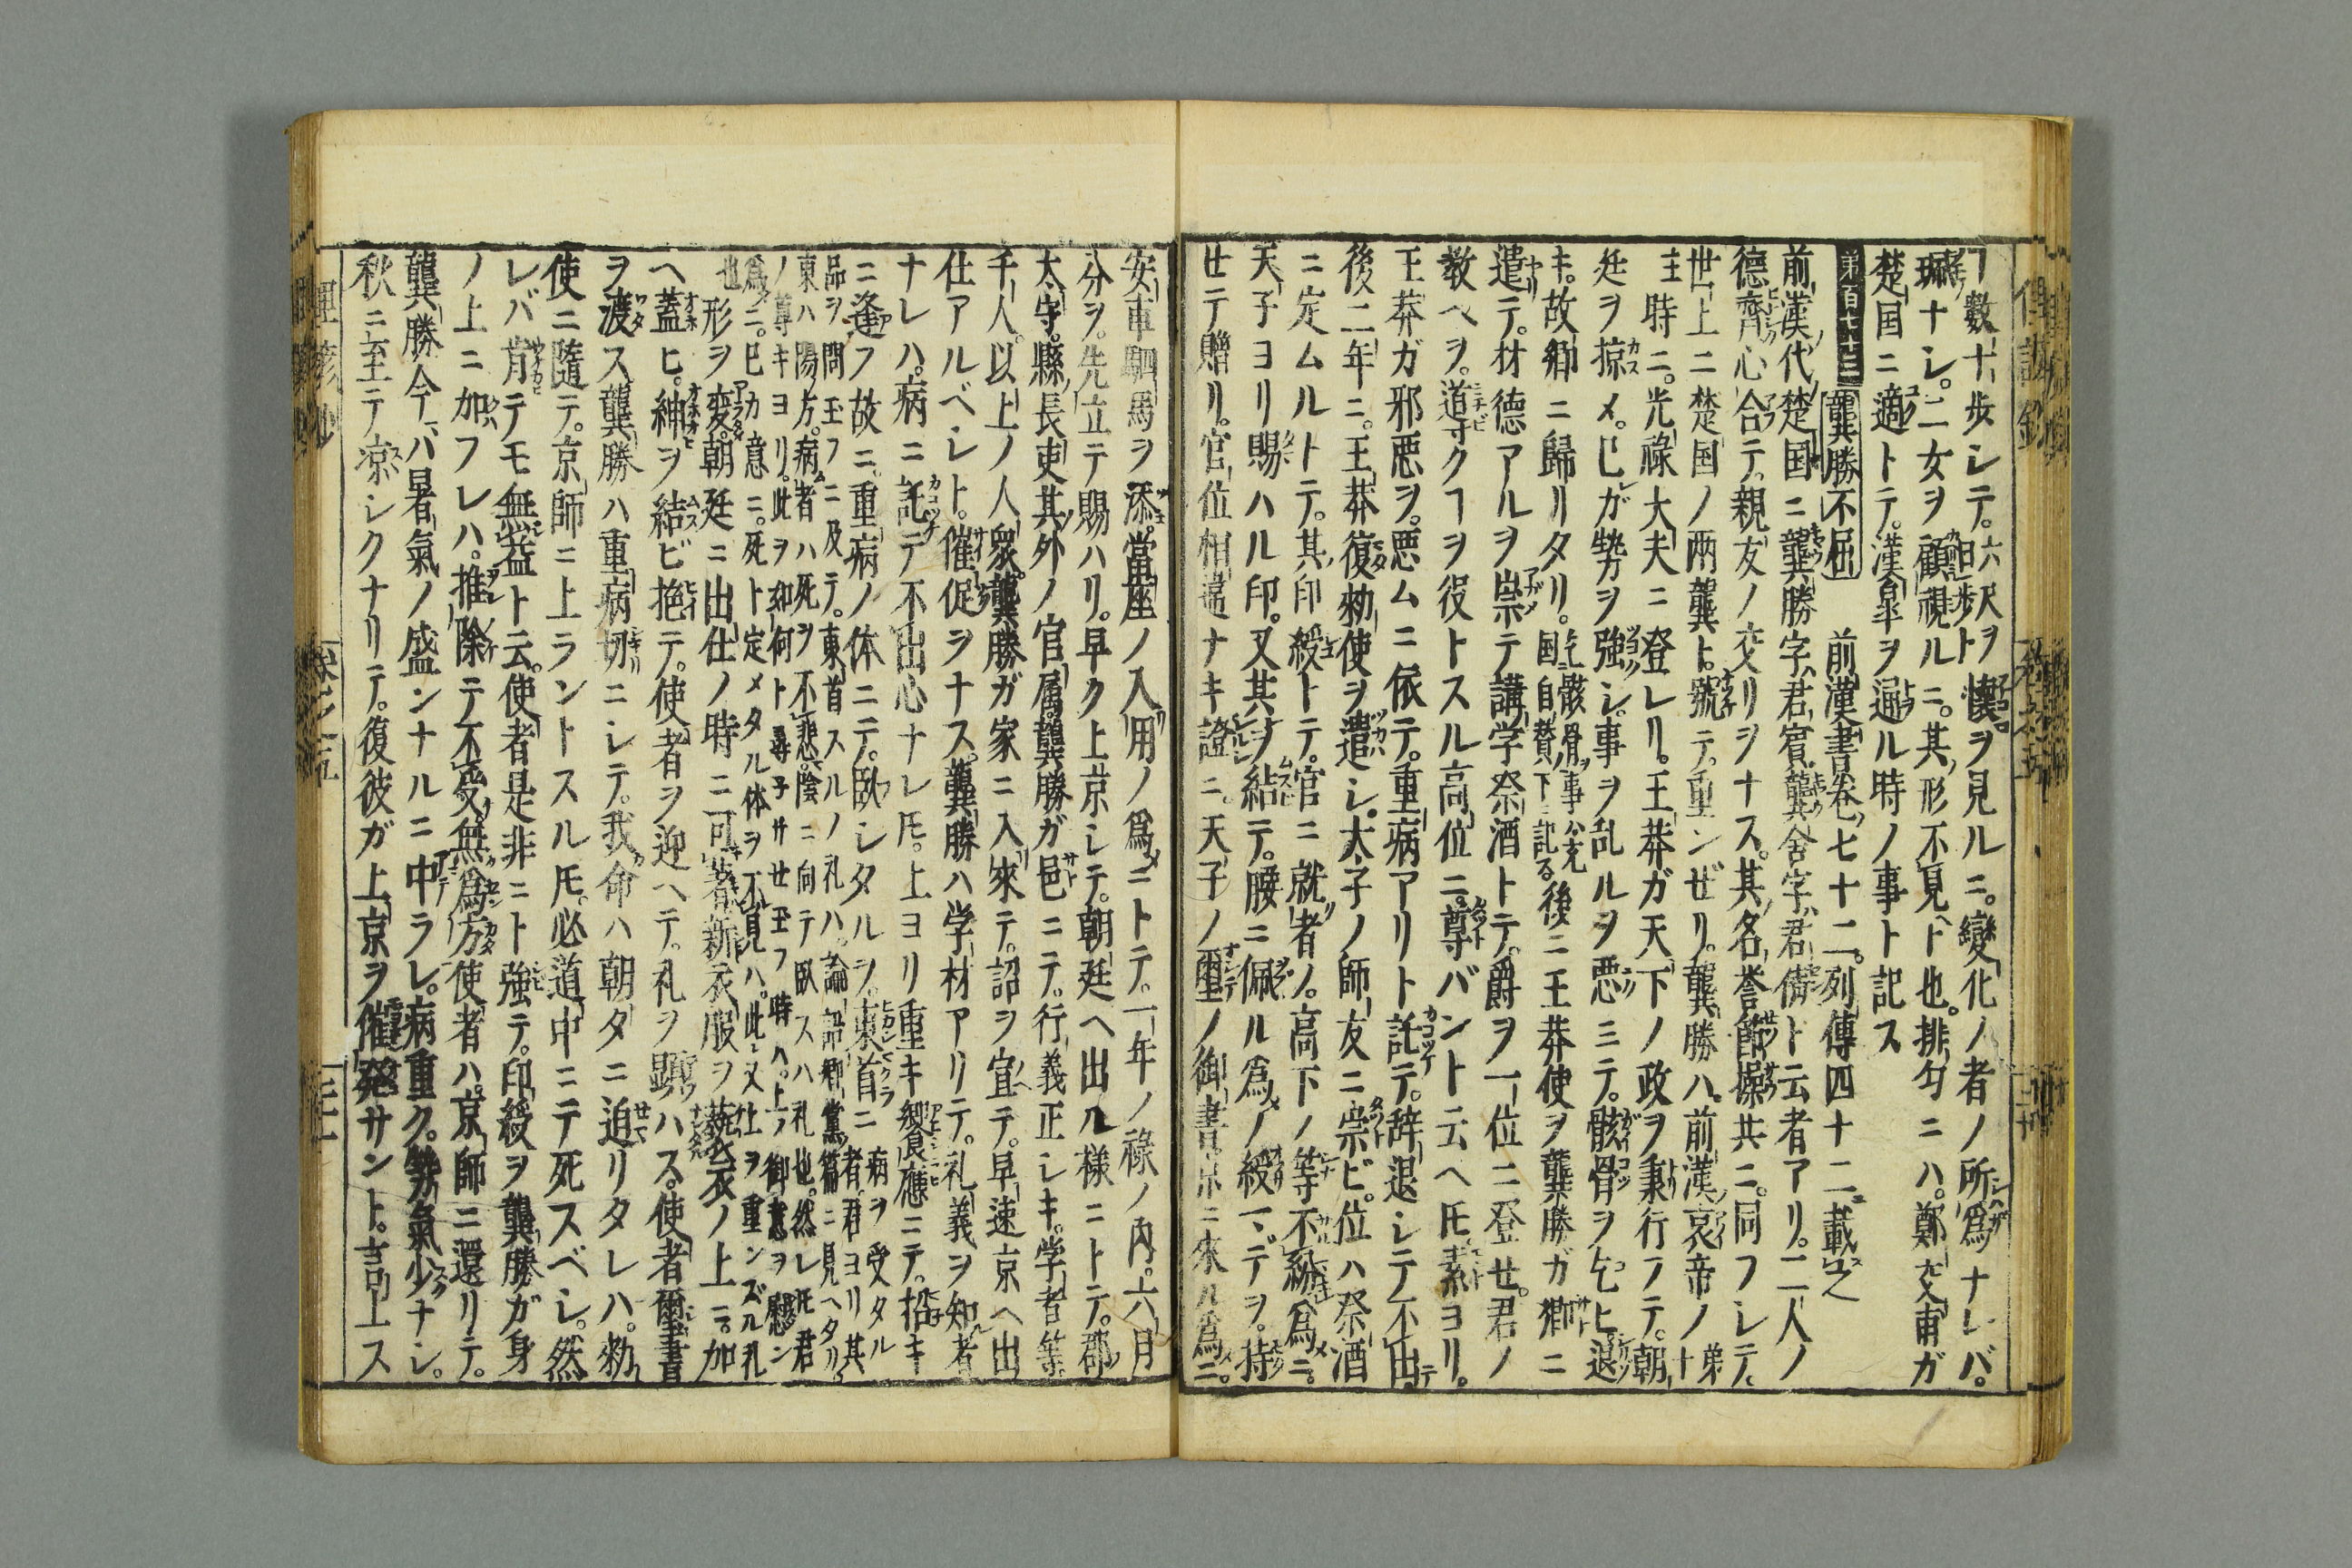 ヿ數十歩シテ。六尺ヲ曰歩ト懷ヲ見ルニ。變化ノ者ノ所為ナレバ。
珮ナシ。二女ヲ顧視ルニ。其形不見ト也。排匀ニハ。鄭交甫ガ
楚国ニ適トテ。漢皐ヲ過ル時ノ事ト記ス
第百七十三 龔勝不屈 前漢書卷七十二。列傳四十二ニ載之
前漢ノ代楚国ニ龔勝字ハ君賓。龔舍字ハ君倩ト云者アリ。二人ノ
德齊ク心合テ。親友ノ交リヲナス。其名誉節操共ニ。同フレテ。
世上ニ楚国ノ両龔ト。號テ。重ンゼリ。龔勝ハ。前漢ノ哀帝ノ第十
主時ニ。光祿大夫ニ登レリ。王莽ガ天下ノ政ヲ秉行フテ。朝
廷ヲ掠メ。已レガ勢ヲ強シ。事ヲ乱ルヲ悪ミテ。骸骨ヲ乞ヒ。退
キ。故郷ニ歸リタリ。乞骸骨ヲ事ハ充国自賛下ニ記る後ニ王莽使ヲ龔勝ガ郷ニ
遣テ。材德アルヲ崇テ講学祭酒トテ。爵ヲ一位ニ登せ。君ノ
教ヘヲ。道クヿヲ役トスル高位ニ。尊バント云ヘ𪜈。素ヨリ。
王莽ガ邪悪ヲ。悪ムニ依テ。重病アリト託テ。辞退シテ不出テ
後二年ニ。王莽復勅使ヲ遣シ。太子ノ師友ニ崇ビ。位ハ祭酒
ニ定ムルトテ。其印綬トテ。官ニ就者ノ。高下ノ等不紛為ニ。
天子ヨリ賜ハル印。又其ヲ結テ。腰ニ佩ル為ノ綬マデヲ。持
せテ贈リ。官位相違ナキ證ニ。天子ノ璽ノ御書京ニ來ル為ニ。
安車駟馬ヲ添。當座ノ入用ノ為ニトテ。一年ノ祿ノ内。六月
分ヲ。先立テ賜ハリ。早ク上京シテ。朝廷ヘ出ル樣ニトテ。郡ノ
太守。縣ノ長吏其外ノ官属。龔勝ガ邑ニテ。行義正シキ。学者等
千人。以上ノ人衆。龔勝ガ家ニ入來テ。詔ヲ宣テ。早速京ヘ出
仕アルベシト。催促ヲナス。龔勝ハ学材アリテ。礼義ヲ知者
ナレハ。病ニ託テ不出心ナレ𪜈。上ヨリ重キ饗應ニテ。招キ
ニ逢フ故ニ。重病ノ体ニテ。臥シタルヲ。東首ニ病ヲ受タル者。君ヨリ其
品ヲ。問玉フニ及テ。東首スルノ礼ハ。論語郷黨ノ篇ニ見ヘタリ。
東ハ陽ノ方。病者ハ死ヲ不悲。陰ニ向テ臥スハ礼也。然レ𪜈君
ノ尊キヨリ。此ヲ卻何ト尋子サせ玉フ時ハ。上ノ御意ヲ慰ン
為ニ。已カ意ニ。死ト定メタル体ヲ不見ハ。此又仕ヲ重ンズル礼
也形ヲ変。朝廷ニ出仕ノ時ニ可著新衣服ヲ褻衣ノ上ニ。加
ヘ蓋ヒ。紳ヲ結ビ拖テ。使者ヲ迎ヘテ。礼ヲ顕ハス。使者璽書
ヲ渡ス龔勝ハ重病切ニシテ。我命ハ朝タニ迫リタレハ。勅
使ニ隨テ。京師ニ上ラントスル𪜈。必道中ニテ死スベシ。然
レバ肯テモ無益ト云。使者是非ニト強テ。印綬ヲ龔勝ガ身
ノ上ニ加フレハ。推除テ不受。無為方使者ハ。京師ニ還リテ。
龔勝今バ暑氣ノ盛ンナルニ中ラレ。病重ク。勢氣少ナシ。
秋ニ至テ凉シクナリテ。復彼ガ上京ヲ催発サント。言上ス